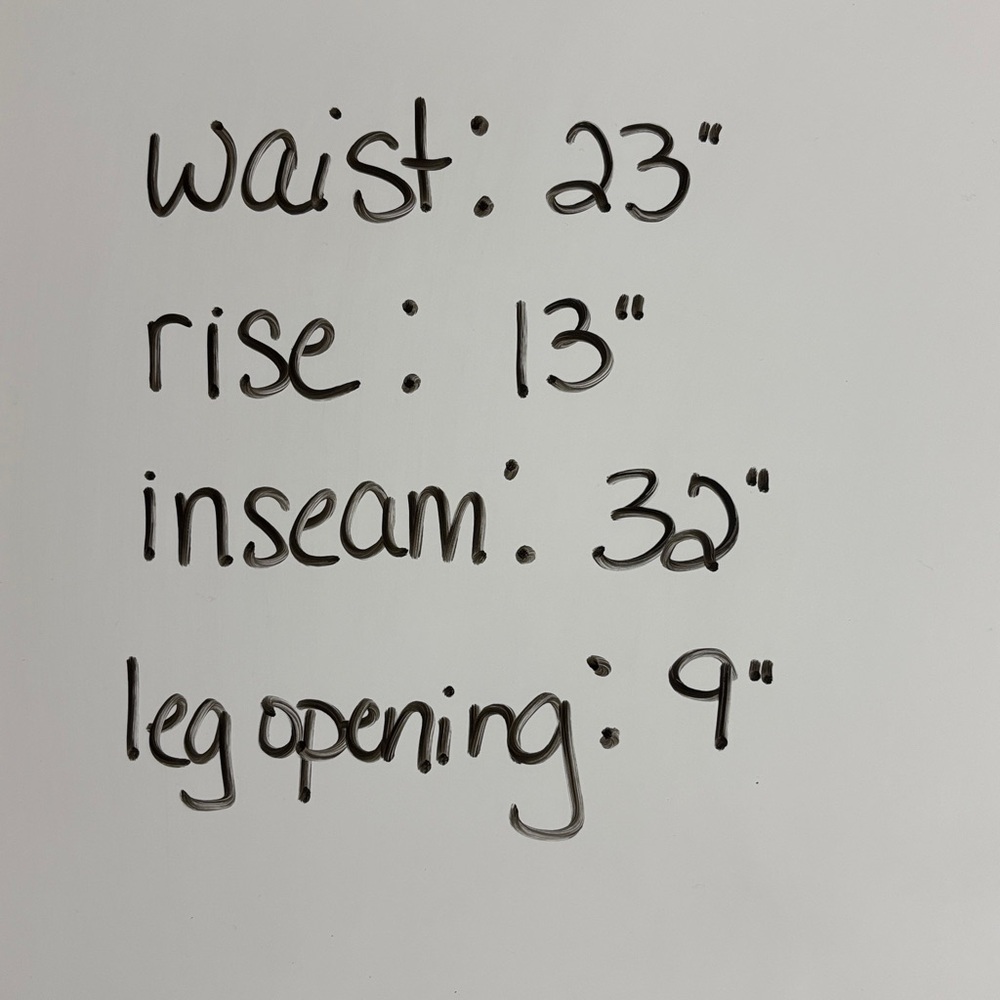 waist: 23"
rise: 13"
inseam: 32"
leg opening: 9"